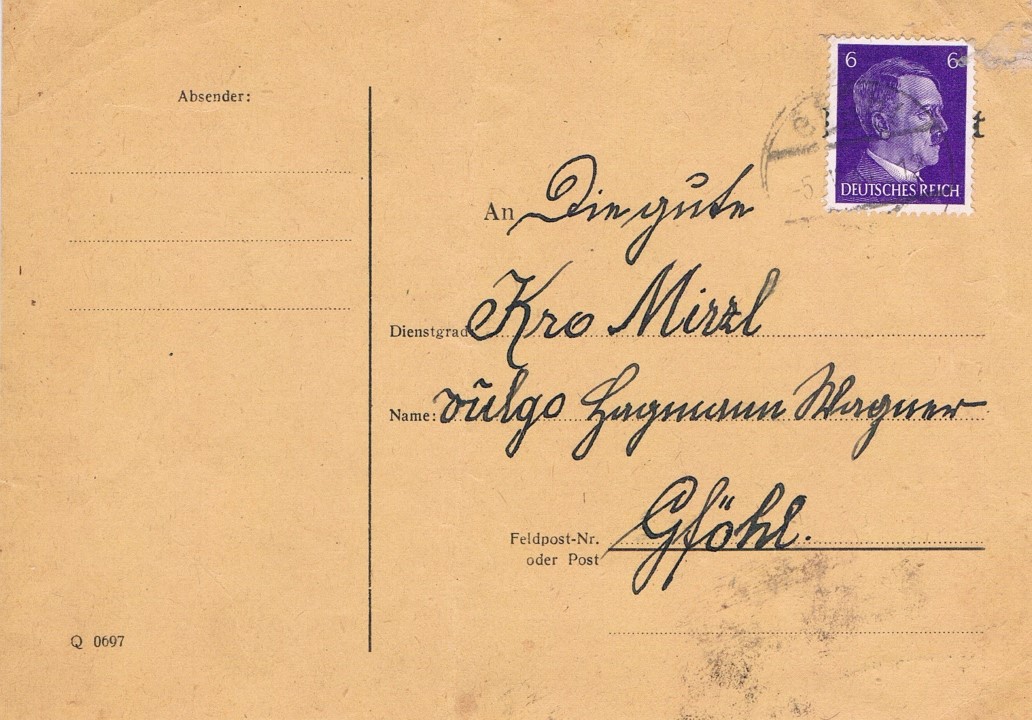 6 6
DEUTSCHES REICH
Absender:
An Die gute
Dienstgrad Kro Mirzl
Name: vulgo Hagmann Wagner
Feldpost-Nr. Gföhl.
oder Post
Q 0697